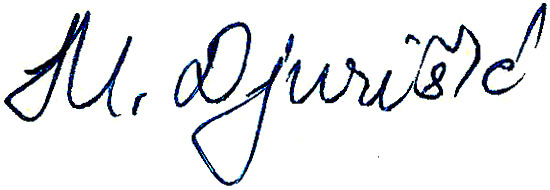 M. Djurišić